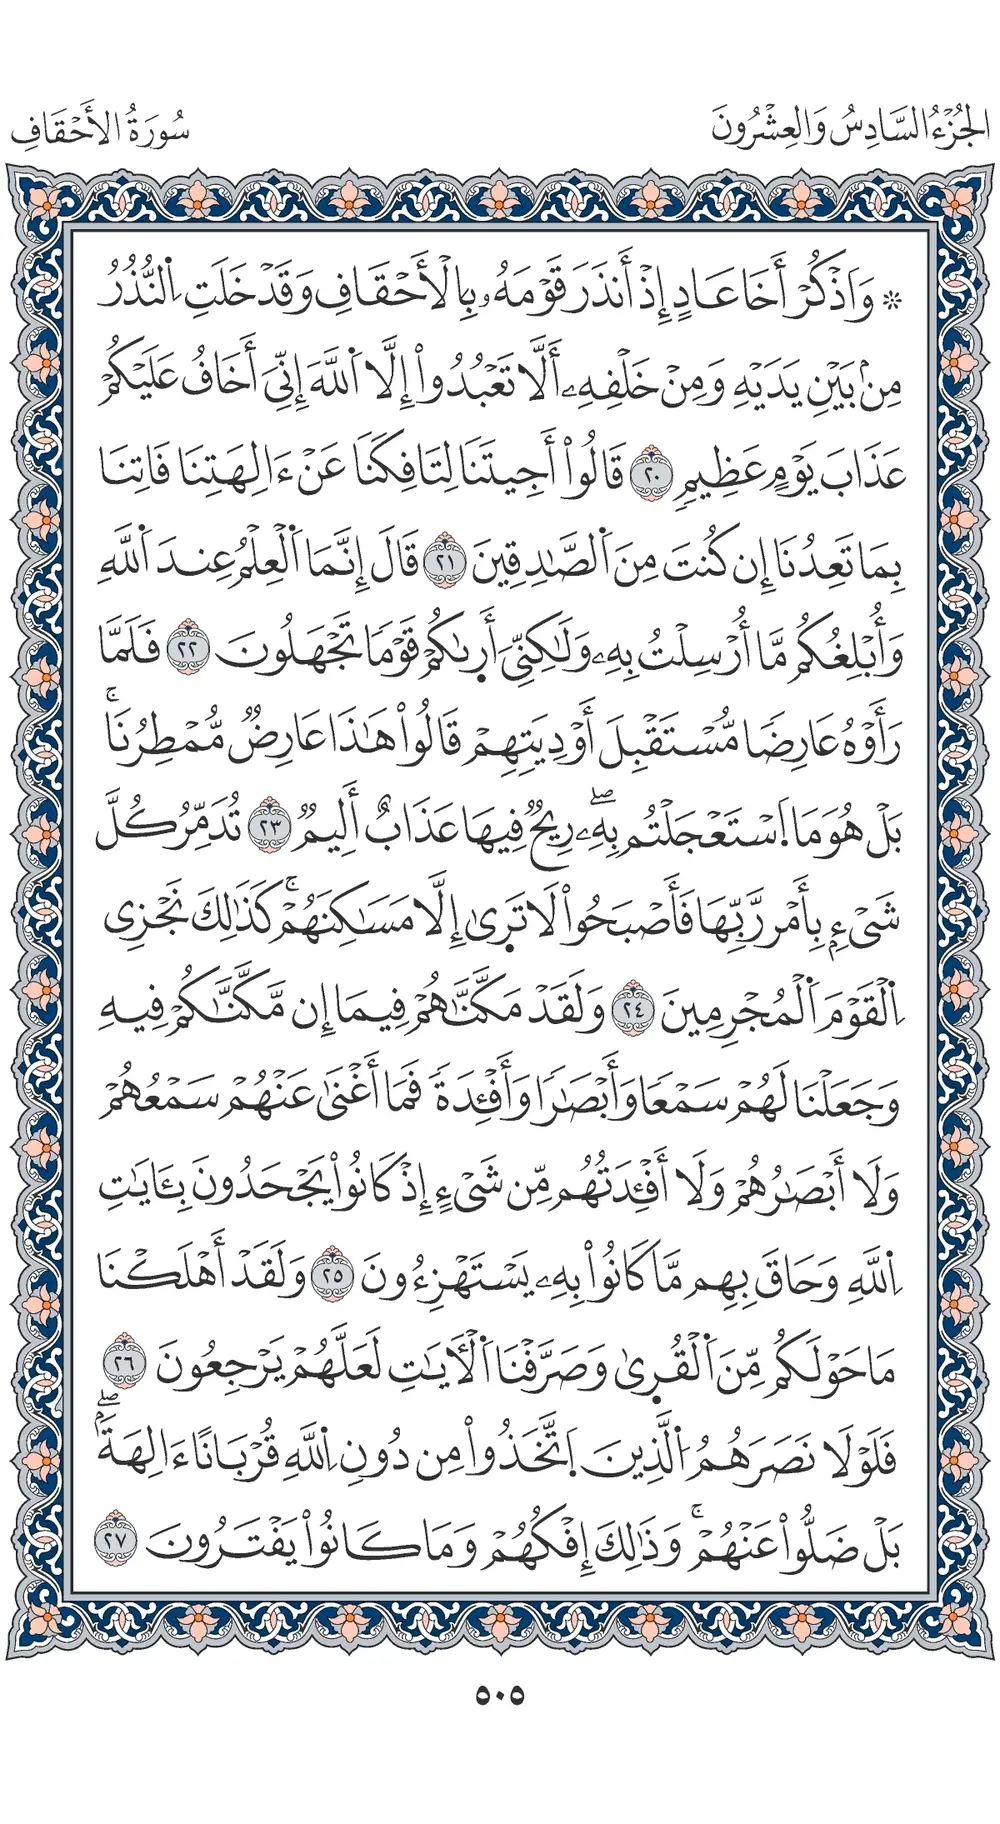 الجُزْءُ السَّادِسُ وَالعِشْرُونَ
سُورَةُ الأَحْقَافِ
۞ وَاَذْكُرْ أَخَا عَادٍ إِذْ أَنذَرَ قَوْمَهُۥ بِالْأَحْقَافِ وَقَدْ خَلَتِ اِلنُّذُرُ
مِنۢ بَيْنِ يَدَيْهِ وَمِنْ خَلْفِهِۦ أَلَّا تَعْبُدُواْ إِلَّا اَللَّهَ إِنِّيَ أَخَافُ عَلَيْكُمْ
عَذَابَ يَوْمٍ عَظِيمٖ ٢٠ قَالُواْ أَجِيتَنَا لِتَافِكَنَا عَنْ ءَالِهَتِنَا فَاتِنَا
بِمَا تَعِدُنَا إِن كُنتَ مِنَ اَلصَّٰدِقِينَ ٢١ قَالَ إِنَّمَا اَلْعِلْمُ عِندَ اَللَّهِ
وَأُبْلِغُكُم مَّا أُرْسِلْتُ بِهِۦ وَلَٰكِنِّيَ أَرِىٰكُمْ قَوْمٗا تَجْهَلُونَ ٢٢ فَلَمَّا
رَأَوْهُ عَارِضٗا مُّسْتَقْبِلَ أَوْدِيَتِهِمْ قَالُواْ هَٰذَا عَارِضٞ مُّمْطِرُنَاۚ
بَلْ هُوَ مَا اَسْتَعْجَلْتُم بِهِۦۖ رِيحٞ فِيهَا عَذَابٌ أَلِيمٞ ٢٣ تُدَمِّرُ كُلَّ
شَيْءِۭ بِأَمْرِ رَبِّهَا فَأَصْبَحُواْ لَا تَرِىٰ إِلَّا مَسَٰكِنَهُمْۚ كَذَٰلِكَ نَجْزِي
اِلْقَوْمَ اَلْمُجْرِمِينَ ٢٤ وَلَقَدْ مَكَّنَّٰهُمْ فِيمَا إِن مَّكَّنَّٰكُمْ فِيهِ
وَجَعَلْنَا لَهُمْ سَمْعٗا وَأَبْصَٰرٗا وَأَفْـِٔدَةٗ فَمَا أَغْنَىٰ عَنْهُمْ سَمْعُهُمْ
وَلَا أَبْصَٰرُهُمْ وَلَا أَفْـِٔدَتُهُم مِّن شَيْءٍ إِذْ كَانُواْ يَجْحَدُونَ بِـَٔايَٰتِ
اِللَّهِ وَحَاقَ بِهِم مَّا كَانُواْ بِهِۦ يَسْتَهْزِءُونَ ٢٥ وَلَقَدْ أَهْلَكْنَا
مَا حَوْلَكُم مِّنَ اَلْقُرِىٰ وَصَرَّفْنَا اَلْأٓيَٰتِ لَعَلَّهُمْ يَرْجِعُونَ ٢٦
فَلَوْلَا نَصَرَهُمُ اُلَّذِينَ اَتَّخَذُواْ مِن دُونِ اِللَّهِ قُرْبَانًا ءَالِهَةَۢۖ
بَلْ ضَلُّواْ عَنْهُمْۚ وَذَٰلِكَ إِفْكُهُمْ وَمَا كَانُواْ يَفْتَرُونَ ٢٧
٥٠٥